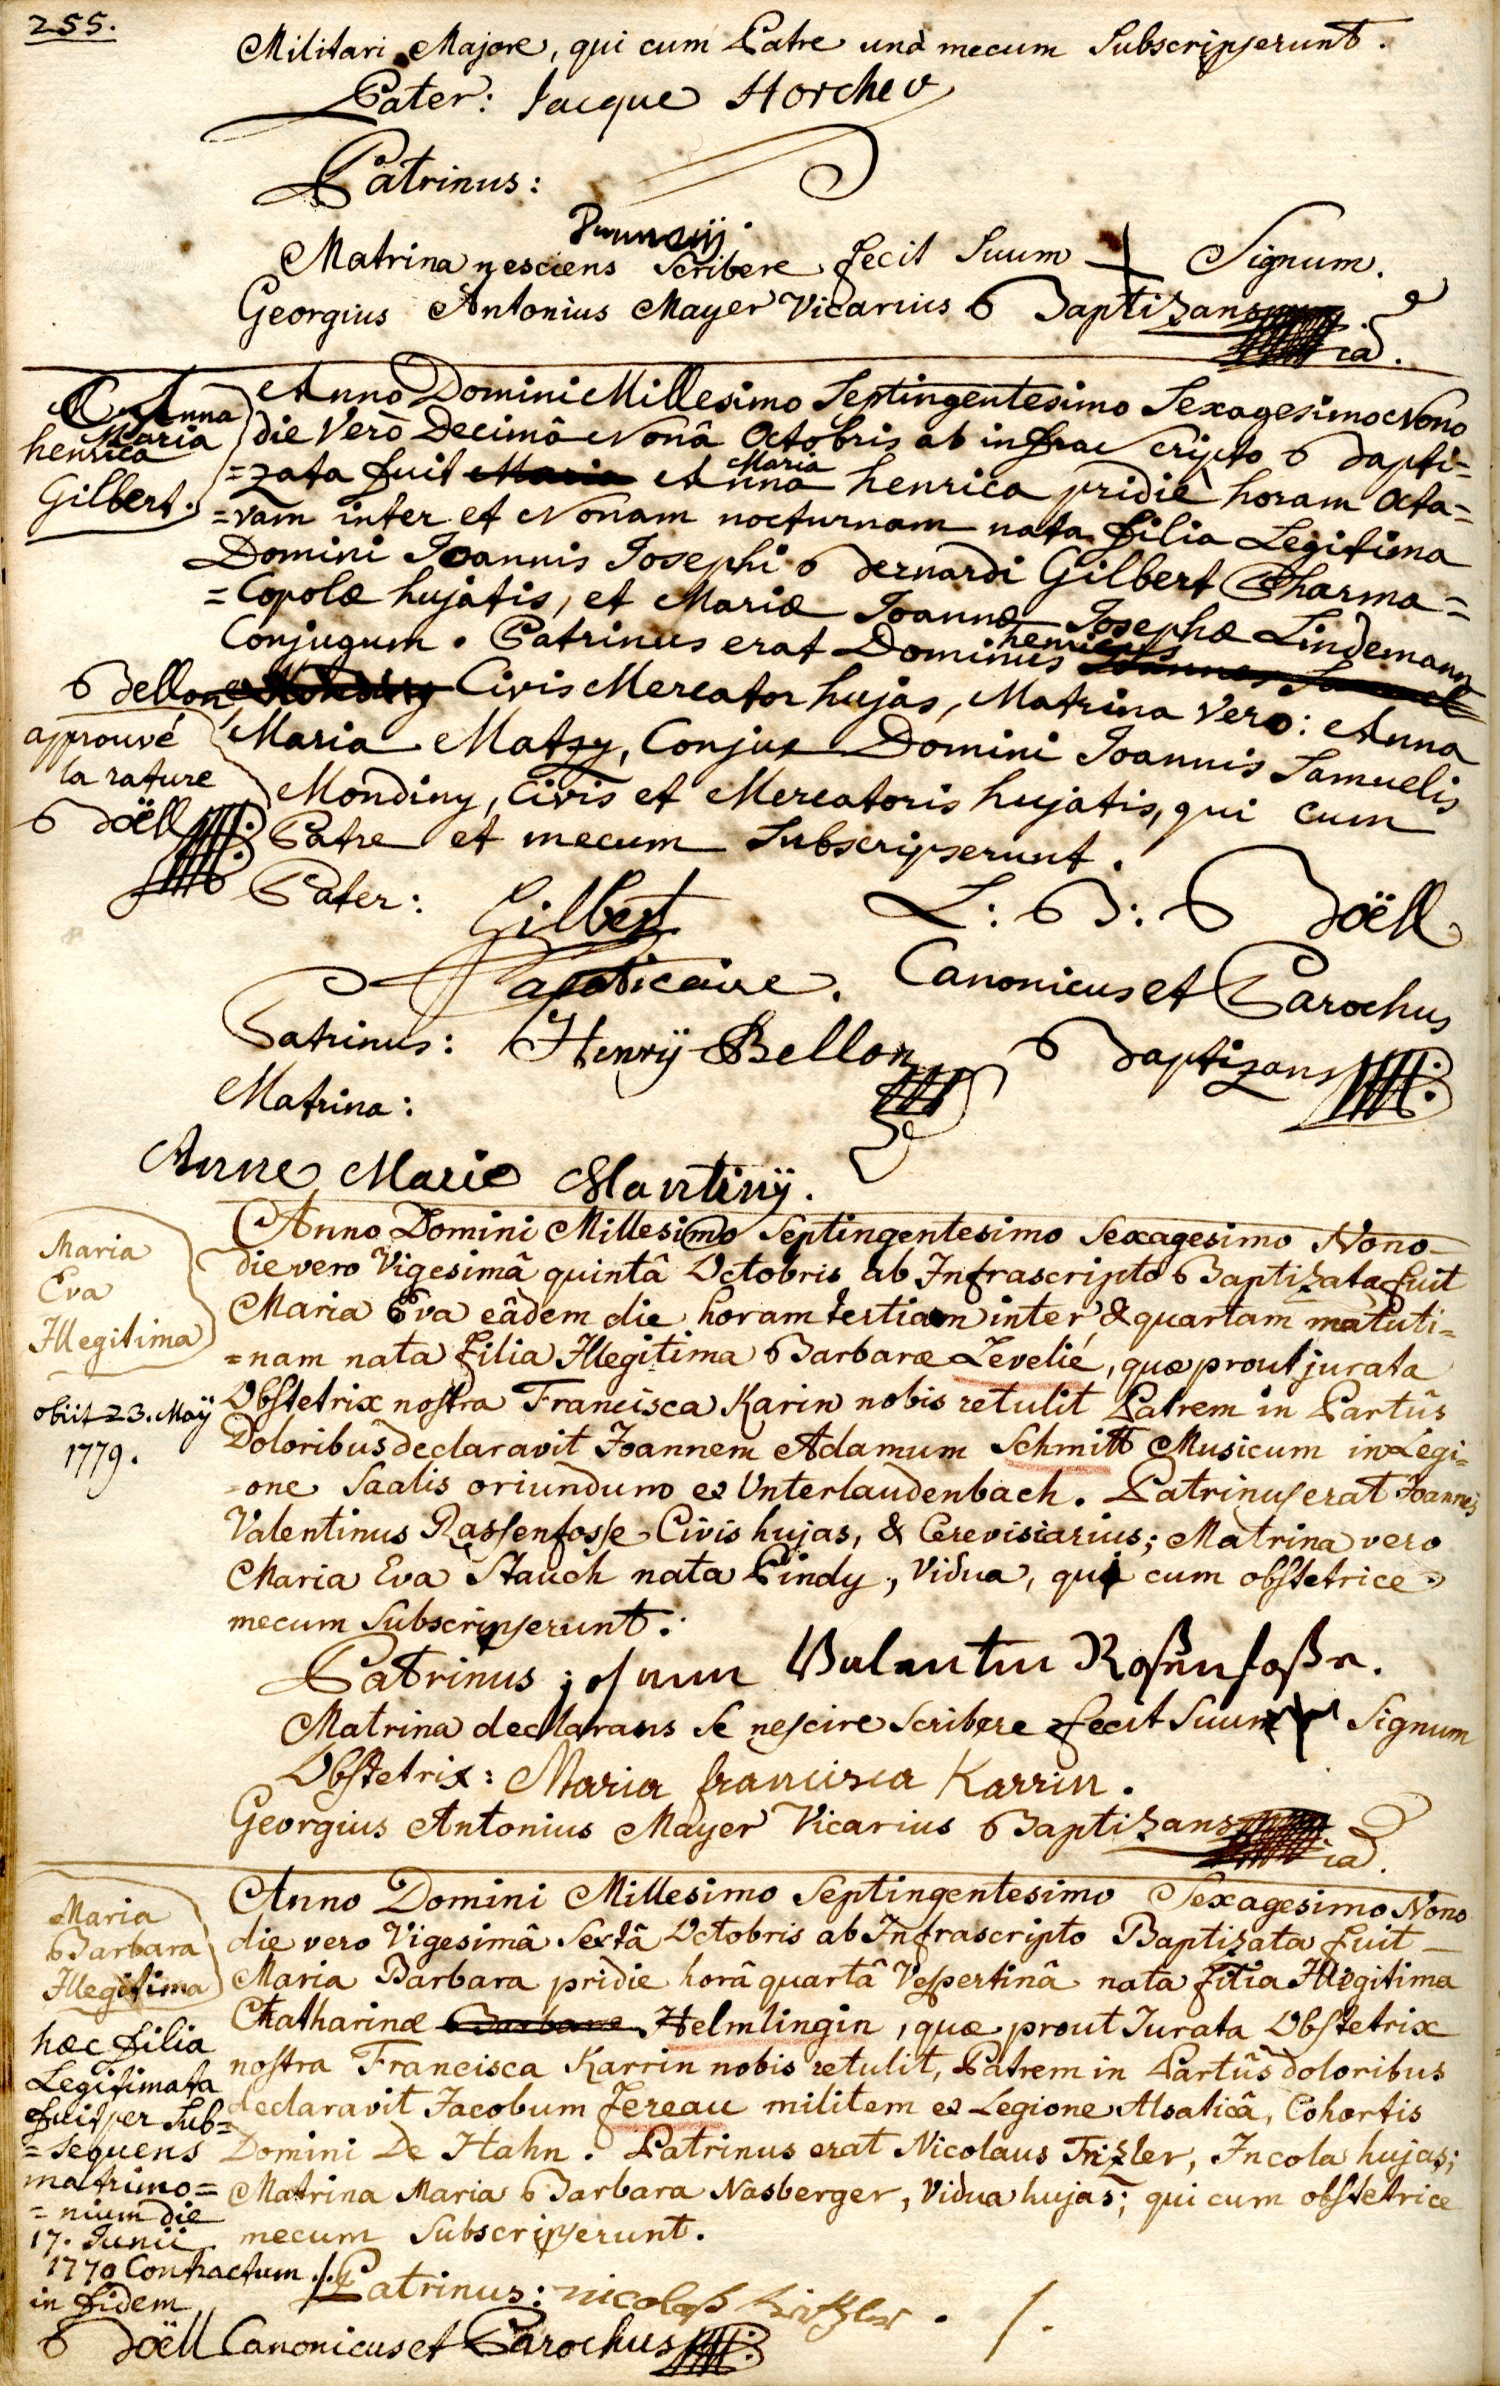 255.
Militari Majore, qui cum Patre unà mecum Subscripserunt.
Pater: Jacque Horcheu
Patrinus:
Matrina nesciens Scribere fecit Suum + Signum.
Georgius Antonius Mayer Vicarius Baptizans
Anna
Maria
henrica
Gilbert.
Anno Domini Millesimo Septingentesimo Sexagesimo Nono
die Verò Decimâ Nonâ Octobris ab infra Scripto Bapti=
=zata fuit Maria Anna Maria henrica pridiè horam Octa=
=vam inter et Nonam nocturnam nata filia Legitima
Domini Joannis Josephi Bernardi Gilbert Pharma=
=Copolæ hujatis, et Mariæ Joannæ Josephæ Lindemann
Conjugum. Patrinus erat Dominus henricus Joannes Samuel
Bellon Mondiny Civis Mercator hujas, Matrina Vero: Anna
Maria Matzy, Conjux Domini Joannis Samuelis
Mondiny, Civis et Mercatoris hujatis, qui cum
Patre et mecum Subscripserunt.
approuvé
la rature
Doëll
Pater: Gilbert
apoticaire.
L: B: Doëll
Canonicus et Parochus
Baptizans
Patrinus: Henrÿ Bellon
Matrina:
Anne Marie Mantinÿ.
Maria
Eva
Illegitima
obiit 23. Maÿ
1779.
Anno Domini Millesimo Septingentesimo Sexagesimo Nono
die vero Vigesimâ quintâ Octobris ab Infrascripto Baptizata fuit
Maria Eva eâdem die horam tertiam inter & quartam matuti=
=nam nata filia Illegitima Barbaræ Levelié, quæ prout jurata
Obstetrix nostra Francisca Karin nobis retulit Patrem in Partûs
Doloribus declaravit Joannem Adamum Schmitt Musicum in Legi=
=one Saalis oriundum ex Unterlaudenbach. Patrinus erat Joannes
Valentinus Rassenfosse Civis hujas, & Cerevisiarius; Matrina vero
Maria Eva Stauch nata Pindy, Vidua, qui cum obstetrice
mecum Subscripserunt.
Patrinus; Valentin Roßenfoße.
Matrina declarans Se nescire Scribere fecit Suum + Signum
Obstetrix: Maria francisca Karrin.
Georgius Antonius Mayer Vicarius Baptizans
Maria
Barbara
Illegitima
hæc filia
Legitimata
fuit per Sub=
=sequens
matrimo=
=nium die
17. Junii
1770 Contractum
in fidem
Doëll Canonicus et Parochus
Anno Domini Millesimo Septingentesimo Sexagesimo Nono
die vero Vigesimâ Sextâ Octobris ab Infrascripto Baptizata fuit
Maria Barbara pridie horâ quartâ Vespertinâ nata filia Illegitima
Chatharinæ Barbara Helmlingin, quæ prout Jurata Obstetrix
nostra Francisca Karrin nobis retulit, Patrem in Partûs doloribus
declaravit Jacobum Jereau militem ex Legione Alsaticâ, Cohortis
Domini De Hahn. Patrinus erat Nicolaus Trizler, Incola hujas;
Matrina Maria Barbara Nasberger, Vidua hujas; qui cum obstetrice
mecum Subscripserunt.
Patrinus: nicolaß